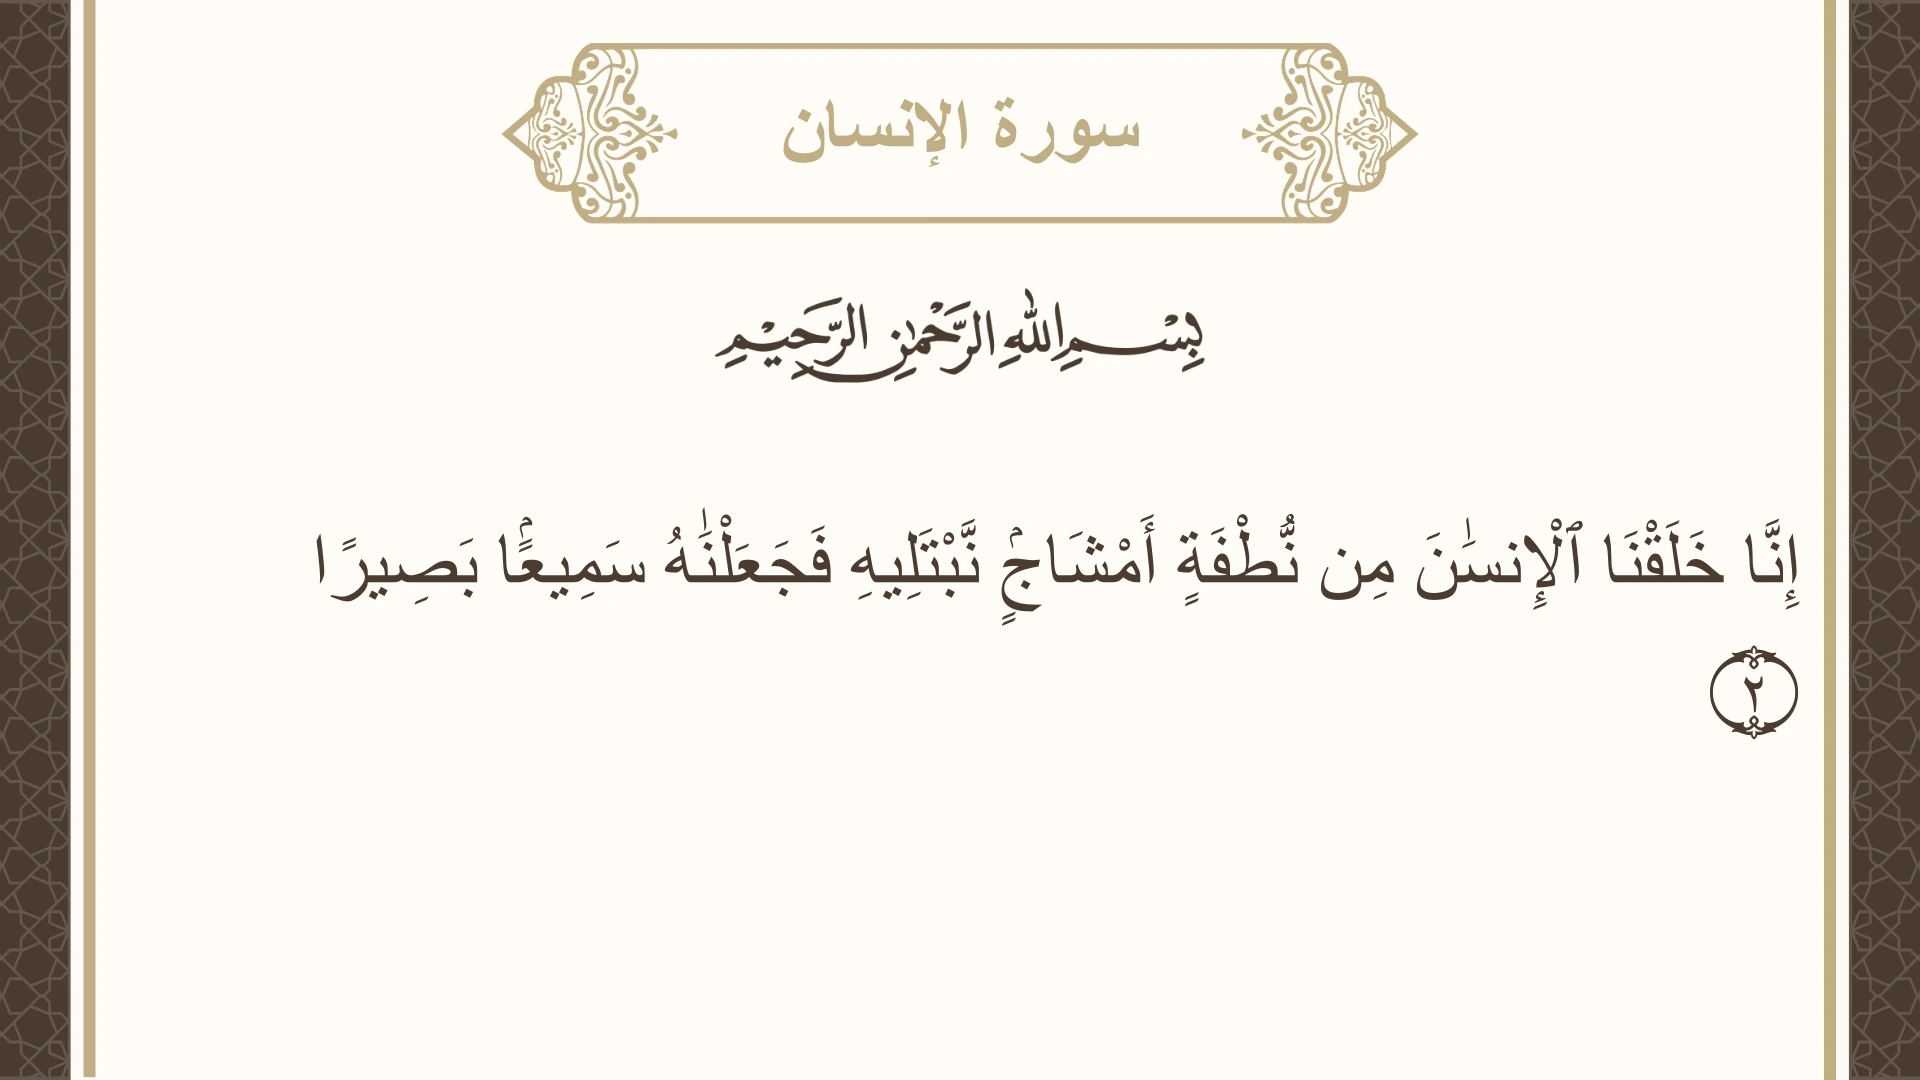 سورة الإنسان
بِسْمِ اللهِ الرَّحْمٰنِ الرَّحِيْمِ
إِنَّا خَلَقْنَا ٱلْإِنسَٰنَ مِن نُّطْفَةٍ أَمْشَاجٍۢ نَّبْتَلِيهِ فَجَعَلْنَٰهُ سَمِيعًۢا بَصِيرًا
٢